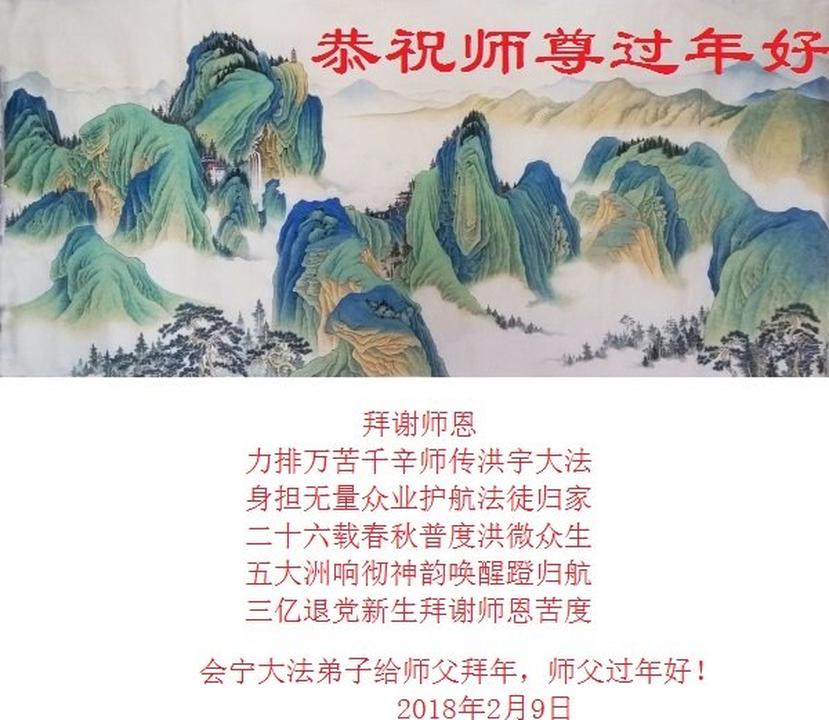 恭祝师尊过年好
拜谢师恩
力排万苦千辛师传洪宇大法
身担无量众业护航法徒归家
二十六载春秋普度洪微众生
五大洲响彻神韵唤醒蹬归航
三亿退党新生拜谢师恩苦度
会宁大法弟子给师父拜年，师父过年好！
2018年2月9日